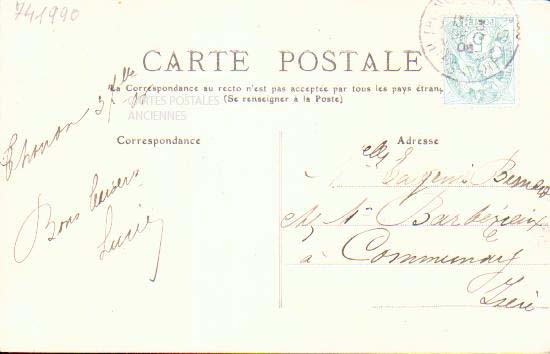 741990
CARTE POSTALE
La Correspondance au recto n'est pas acceptée par tous les pays étran
(Se renseigner à la Poste)
CARTES POSTALES
ANCIENNES
Correspondance
Adresse
Thonon 3/
Bons baisers
Lucie
Elle Eugénie
Mr Barbérieux
à Communay
Isère